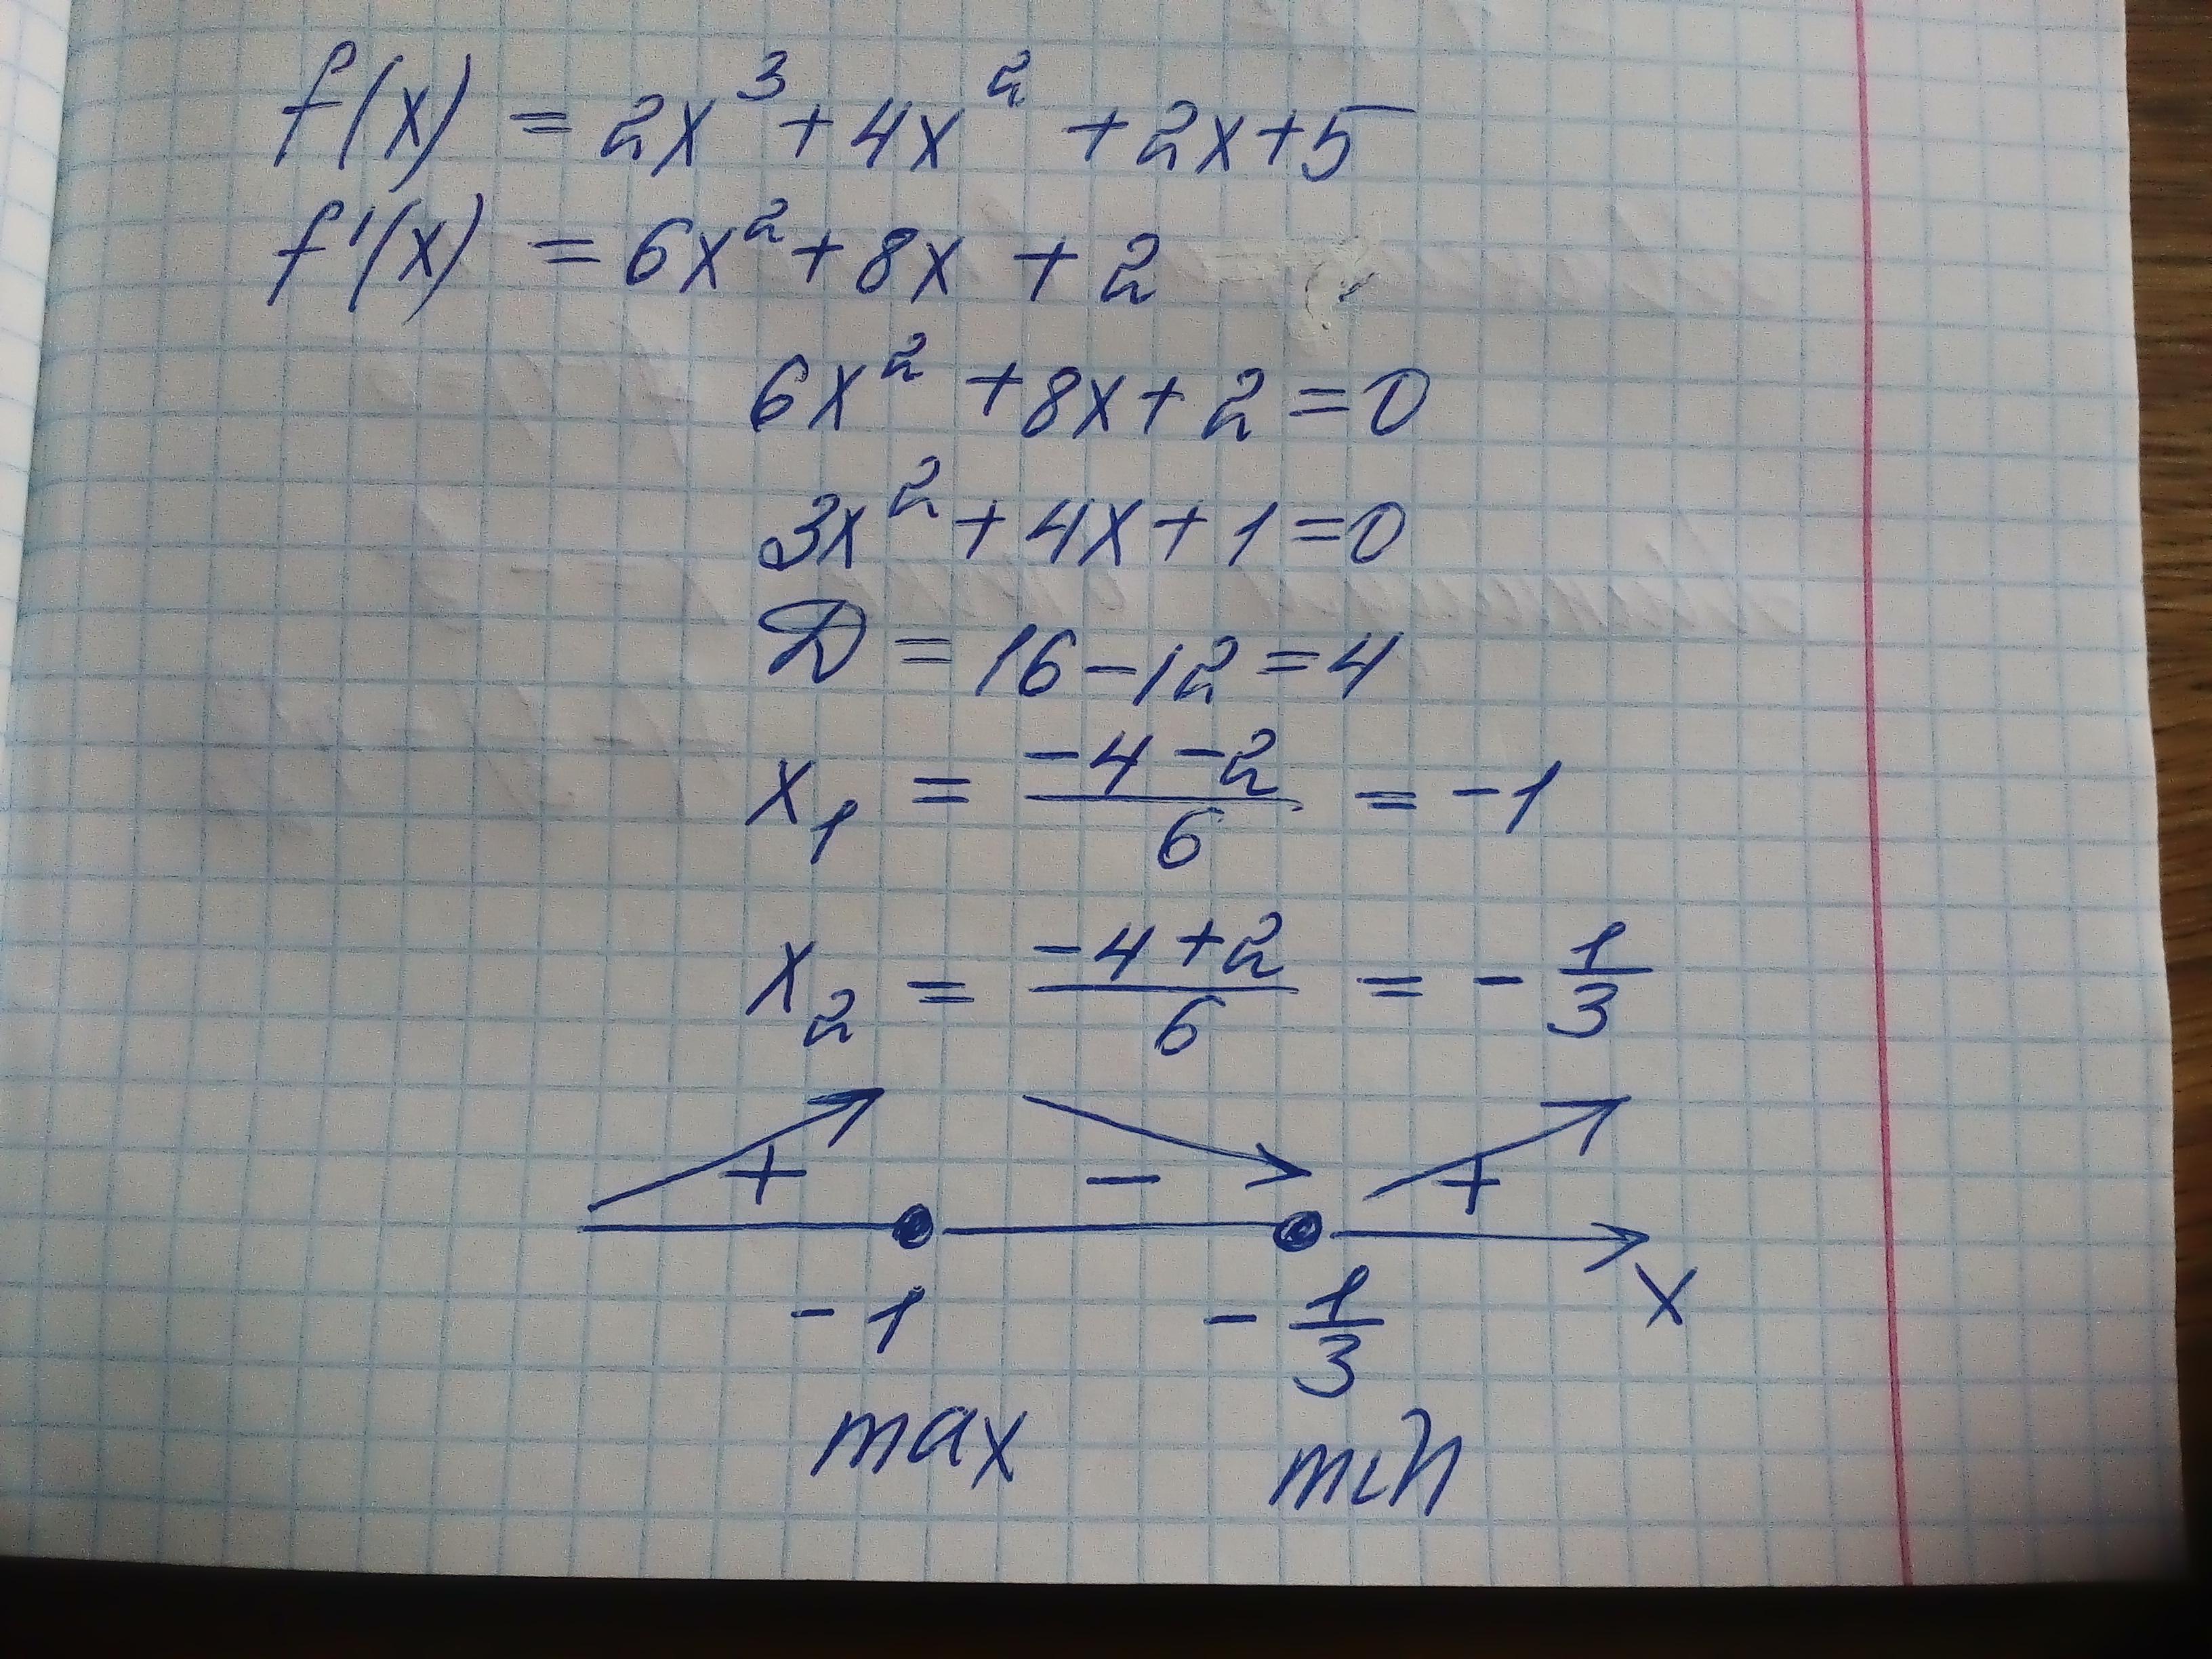 f(x) = 2x³ + 4x² + 2x + 5
f'(x) = 6x² + 8x + 2
6x² + 8x + 2 = 0
3x² + 4x + 1 = 0
D = 16 - 12 = 4
x₁ = (-4 - 2)/6 = -1
x₂ = (-4 + 2)/6 = -1/3
+ - +
-1 -1/3 x
max min